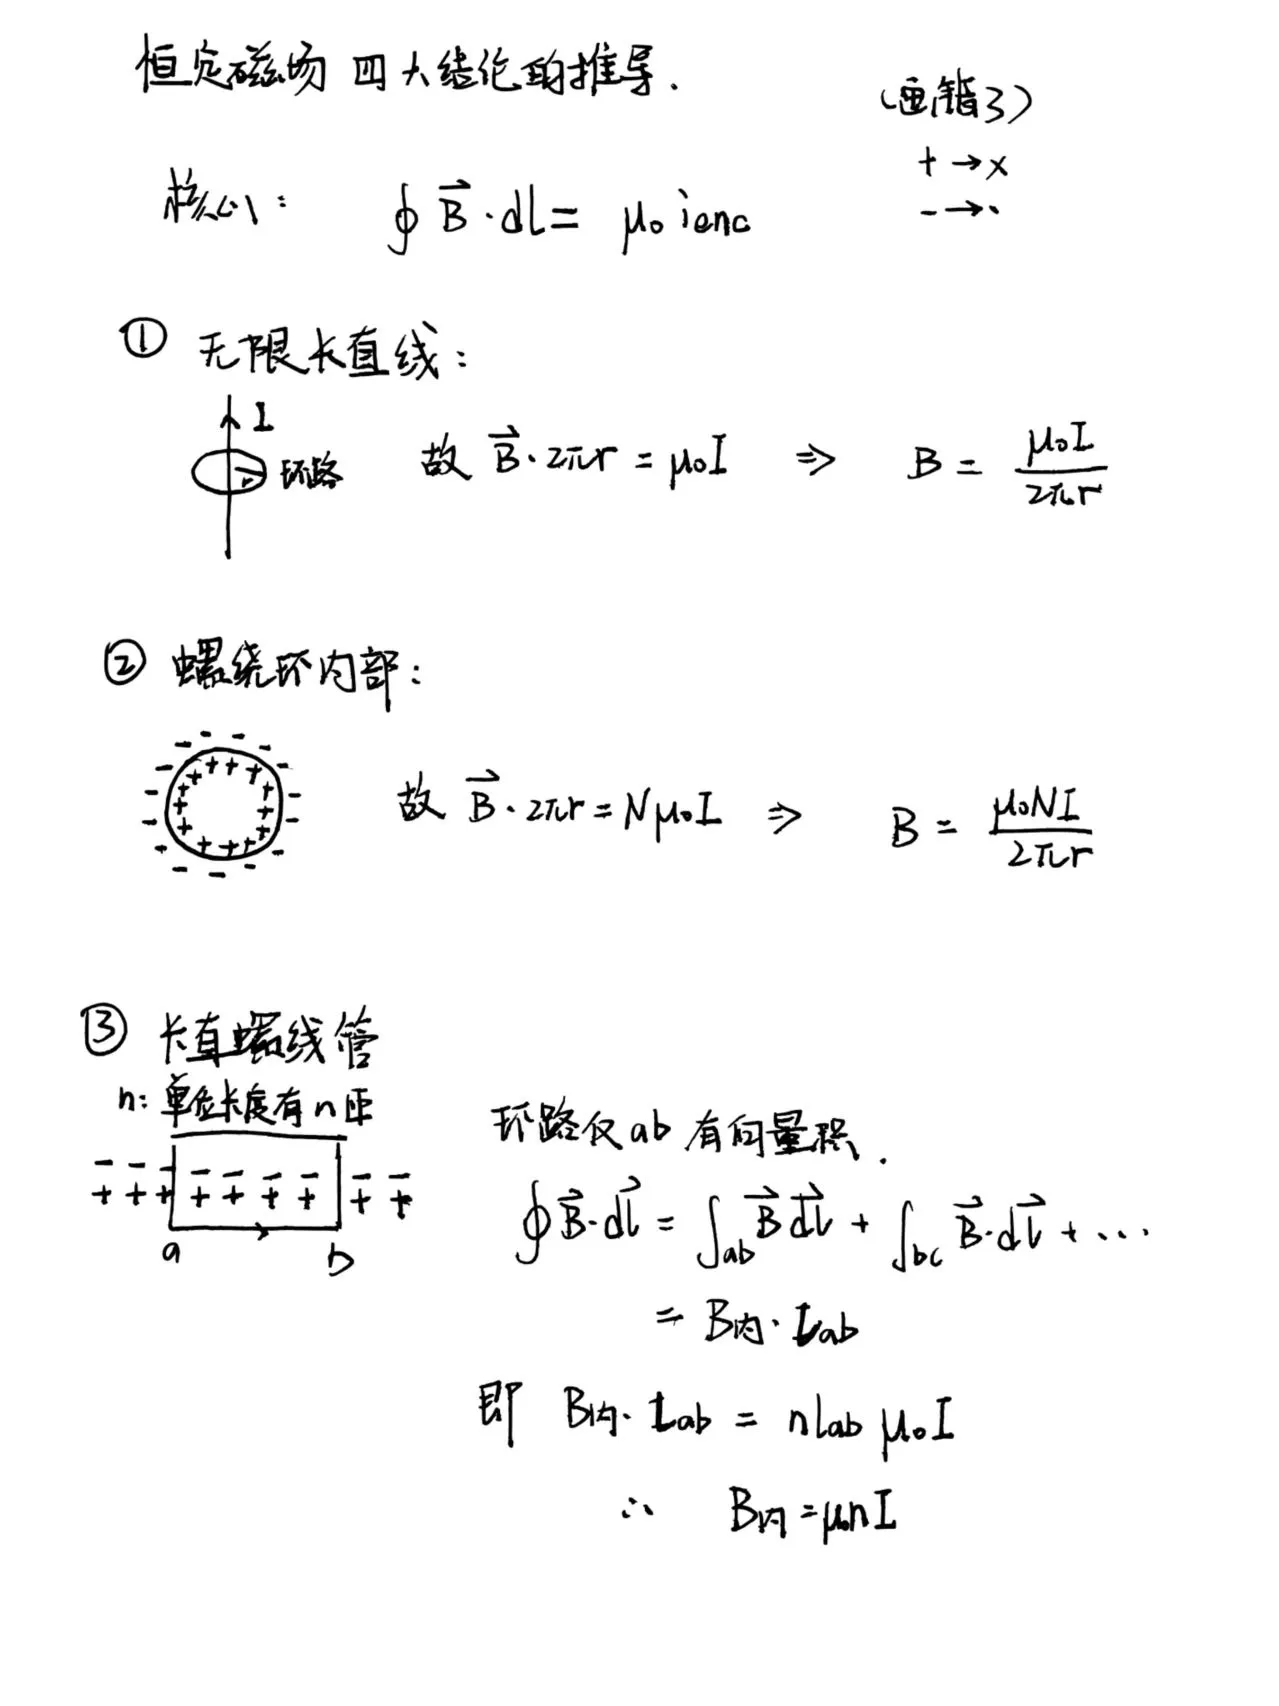 恒定磁场 四大结论的推导.
(画错了)
+ → x
- → ·
核心1: ∮ B⃗ · dl = μ₀ i enc
① 无限长直线:
I
r 环路
故 B⃗ · 2πr = μ₀I ⇒ B = μ₀I / 2πr
② 螺绕环内部:
故 B⃗ · 2πr = Nμ₀I ⇒ B = μ₀NI / 2πr
③ 长直螺线管
n: 单位长度有n匝
a b
环路仅ab有向量积.
∮ B⃗ · dl⃗ = ∫ab B⃗ dl⃗ + ∫bc B⃗ · dl⃗ + ...
= B内 · Lab
即 B内 · Lab = nlab μ₀I
∴ B内 = μ₀nI